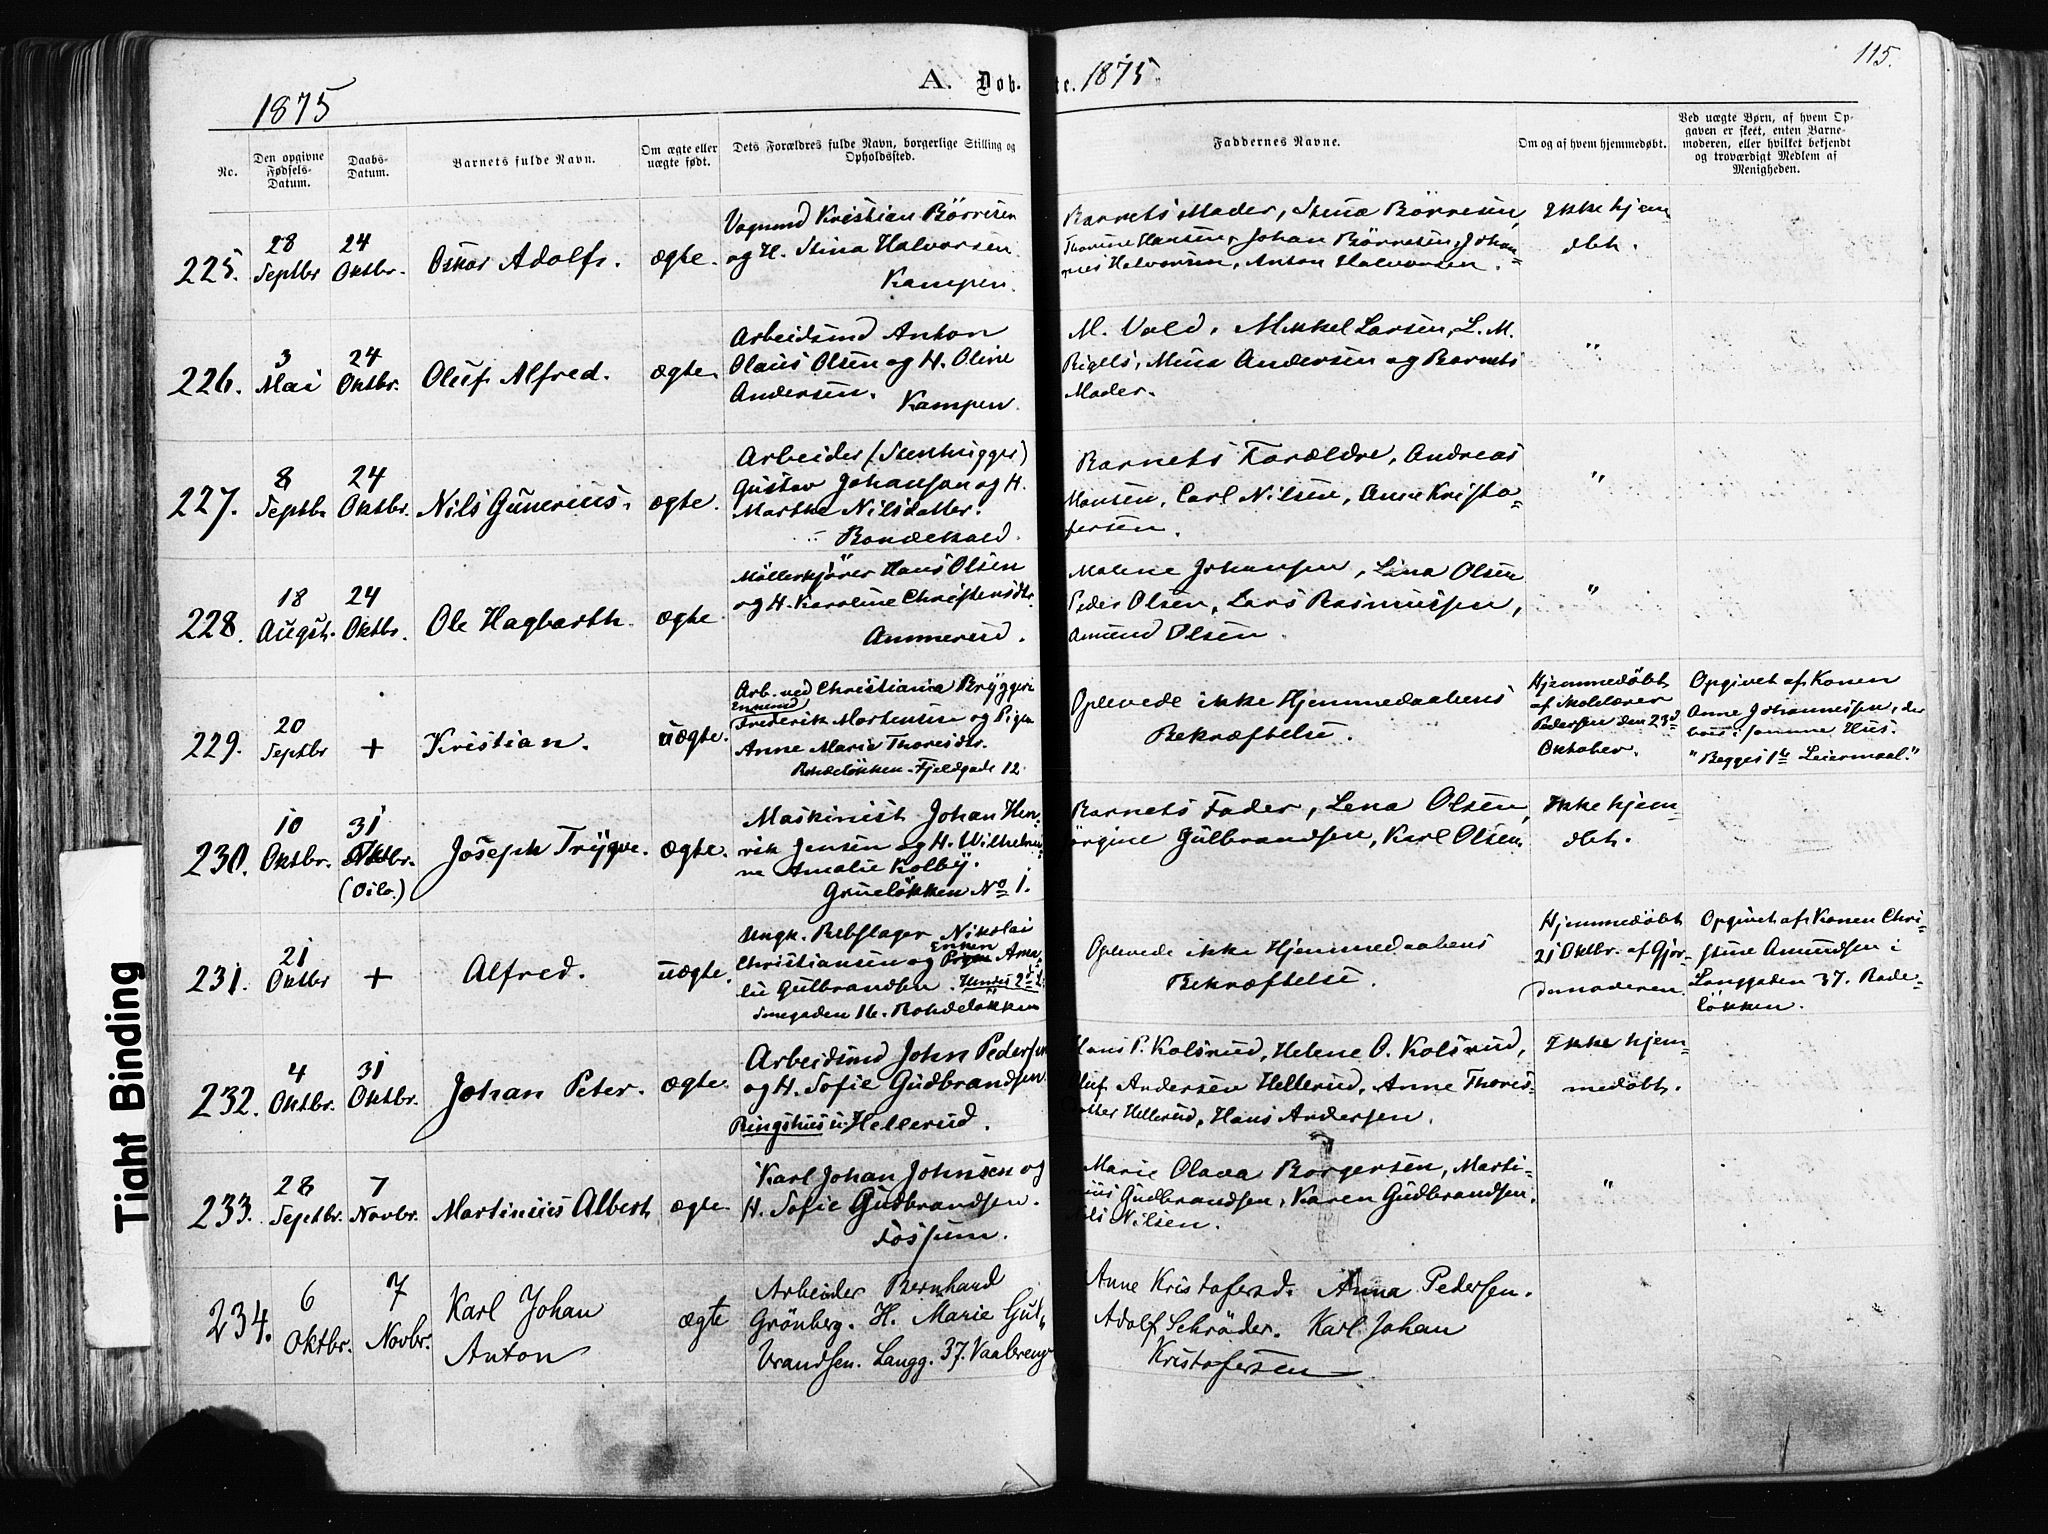 115.
1875
A. Døb- te. 1875.
No.
Den opgivne Fødsels-Datum.
Daabs-Datum.
Barnets fulde Navn.
Om ægte eller uægte født.
Dets Forældres fulde Navn, borgerlige Stilling og Opholdssted.
Faddernes Navne.
Om og af hvem hjemmedøbt.
Ved uægte Børn, af hvem Opgaven er skeet, enten Barnemoderen, eller hvilket bekjendt og troværdigt Medlem af Menigheden.
225. 28 Septbr 24 Oktbr. Oskar Adolf. ægte.
Vognmd Kristian Börresen
og H. Stina Halvorsen
Kampen.
Barnets Moder, Stina Börresen,
Thorine Hansen, Johan Börresen, Johan=
nes Halvorsen, Anton Halvorsen.
Ikke hjem
døbt.
226. 3 Mai 24 Oktbr. Oluf Alfred. ægte.
Arbeidsmd Anton
Olaus Olsen og H. Oline
Andersen.
Kampen.
M. Vold, Mikkel Larsen, L. M.
Rigels, Mina Andersen og Barnets
Moder.
"
227. 8 Septbr 24 Oktbr. Nils Gunerius. ægte.
Arbeider (Stenhugger)
Gustav Johansen og H.
Marthe Nilsdatter.
Barnets Forældre, Andreas
Hansen, Carl Nilsen, Anne Kristo=
fersen.
"
228. 18 Augst. 24 Oktbr. Ole Hagbarth. ægte.
Möllerkjörer Hans Olsen
og H. Karoline Christensdtr.
Ammerud.
Malene Johansen, Lina Olsen
Peder Olsen, Lars Rasmussen,
Amund Olsen.
"
229. 20 Septbr + Kristian. uægte.
Arb. ved Christiania Bryggeri
Enkemd
Frederik Mortensen og Pigen
Anne Marie Thoresdtr.
Rodeløkken. Fjeldgade 12.
Oplevede ikke Hjemmedaabens
Bekræftelse.
Hjemmedøbt
af Skolelærer
Pedersen den 23d
Oktober.
Opgivet af Konen
Anne Johannessen, der
bor i samme Hus.
"Begges 1te Leiermaal."
230. 10 Oktbr. 31 Oktbr. (Oslo.) Joseph Trygve. ægte.
Maskinist Johan Hen-
rik Jensen og H. Wilhelmi-
ne Amalie Kolby.
Grueløkken No 1.
Barnets Fader, Lena Olsen,
Jörgine Gulbrandsen, Karl Olsen.
Ikke hjem-
døbt.
231. 21 Oktbr + Alfred. uægte.
Ungk. Rebslager Nikolai
Christiansen og Enken Ama-
lie Gulbrandsen. Hendes 2d L.
Smegaden 16. Rohdeløkken
Oplevede ikke Hjemmedaabens
Bekræftelse.
Hjemmedøbt
21 Oktbr. af Gjor-
demoderen.
Opgivet af Konen Chri-
stine Amundsen i
Langgaden 37. Rode-
løkken.
232. 4 Oktbr. 31 Oktbr. Johan Peter. ægte.
Arbeidsmd John Pedersen
og H. Sofie Gudbrandsen
Ringshus u. Hellerud.
Hans P. Kolsrud, Helene O. Kolsrud,
Oluf Andersen Hellerud, Anne Thores-
datter Hellerud, Hans Andersen.
Ikke hjem-
medøbt.
233. 28 Septbr. 7 Novbr. Martinius Albert ægte
Karl Johan Johnsen og
H. Sofie Gudbrandsen.
Fossum.
Marie Olava Borgersen, Marti-
nius Gudbrandsen, Karen Gudbrandsen.
Nils Nilsen.
"
234. 6 Oktbr. 7 Novbr. Karl Johan
Anton
ægte
Arbeider Bernhard
Grönberg. H. Marie Gul"
brandsen. Langg. 37. Vaalereng
Anne Kristofersd. Anna Pedersen.
Adolf Schröder. Karl Johan
Kristofersen
Tight Binding